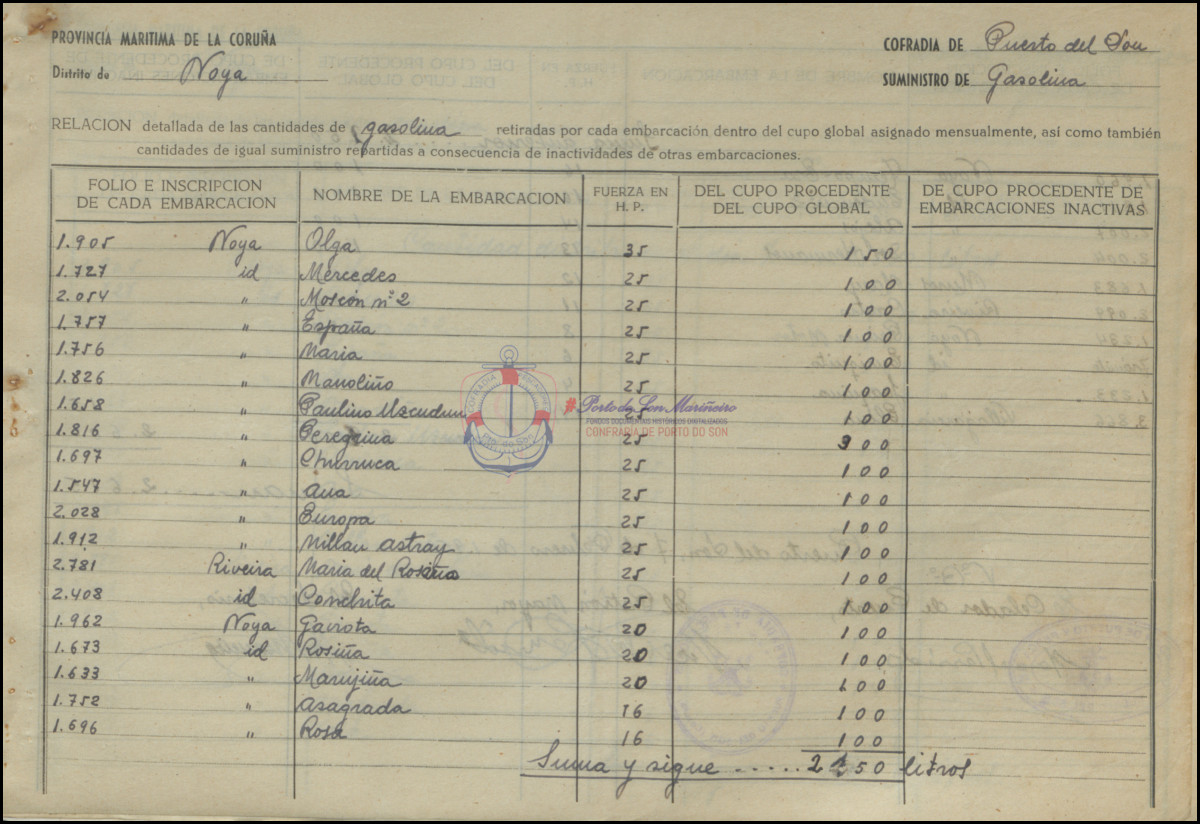 PROVINCIA MARITIMA DE LA CORUÑA
Distrito de Noya
COFRADIA DE Puerto del Son
SUMINISTRO DE Gasolina
RELACION detallada de las cantidades de gasolina retiradas por cada embarcación dentro del cupo global asignado mensualmente, así como también
cantidades de igual suministro repartidas a consecuencia de inactividades de otras embarcaciones.
FOLIO E INSCRIPCION DE CADA EMBARCACION NOMBRE DE LA EMBARCACION FUERZA EN H. P. DEL CUPO PROCEDENTE DEL CUPO GLOBAL DE CUPO PROCEDENTE DE EMBARCACIONES INACTIVAS
1.905 Noya Olga 35 150
1.727 id Mercedes 25 100
2.054 " Moscón nº 2 25 100
1.757 " España 25 100
1.756 " Maria 25 100
1.826 " Manoliño 25 100
1.658 " Paulino 25 100
1.816 " Peregrina 25 300
1.697 " Churruca 25 100
1.547 " Ana 25 100
2.028 " Europa 25 100
1.912 " Millan astray 25 100
2.781 Riveira Maria del Rosario 25 100
2.408 id Conchita 25 100
1.962 Noya Gaviota 20 100
1.673 id Rosiña 20 100
1.633 " Marujiña 20 100
1.752 " asagrada 16 100
1.696 " Rosa 16 100
Suma y sigue ..... 2150 litros
#Porto do Son Mariñeiro
FONDOS DOCUMENTAIS HISTÓRICOS DIXITALIZADOS
CONFRARÍA DE PORTO DO SON